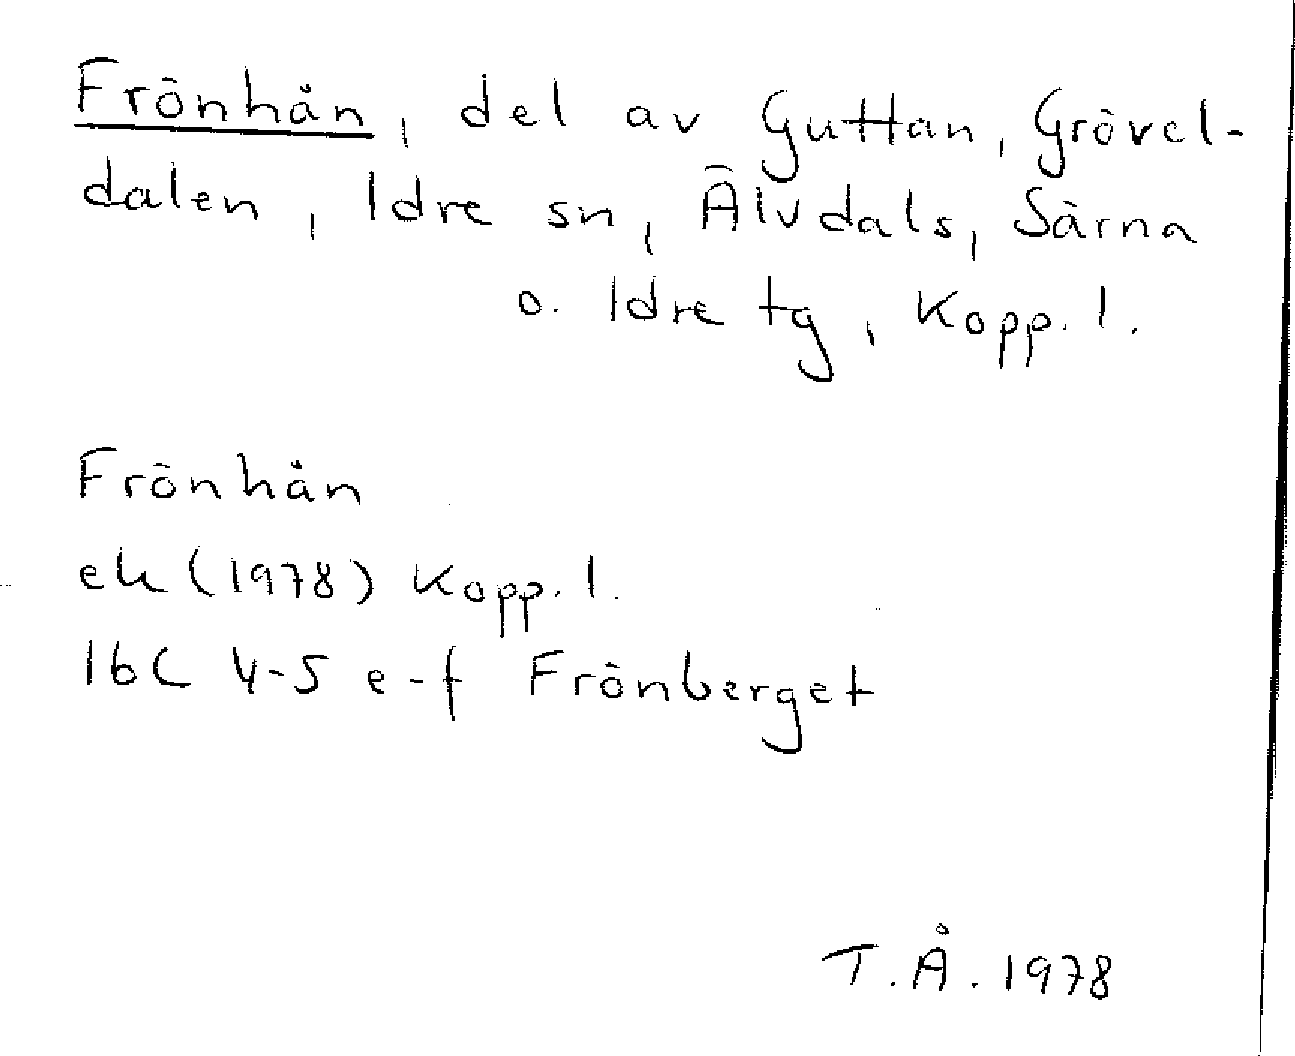 Frönhån, del av Guttan, Grövel-
dalen, Idre sn, Älvdals, Särna
o. Idre tg, Kopp. l.
Frönhån
ek (1978) Kopp. l.
16C 4-5 e-f Frönberget
T.Å. 1978